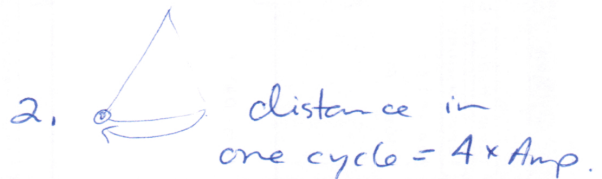 2. distance in
one cycle = 4 × Amp.